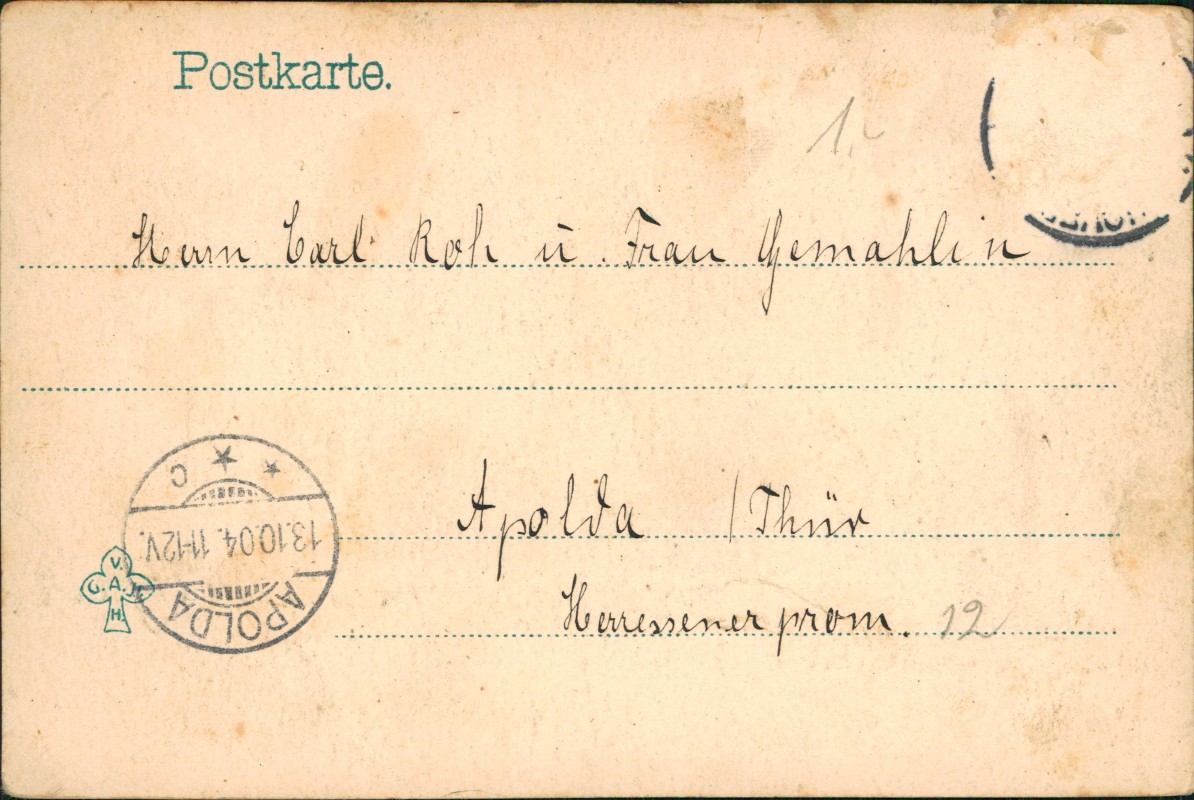 Postkarte.
1.-
Herrn Carl Koh u. Frau Gemahlin
Apolda /Thür
Herressener prom. 12
APOLDA
13.10.04. 11-12V.
* * C
V.
G. A.
H.